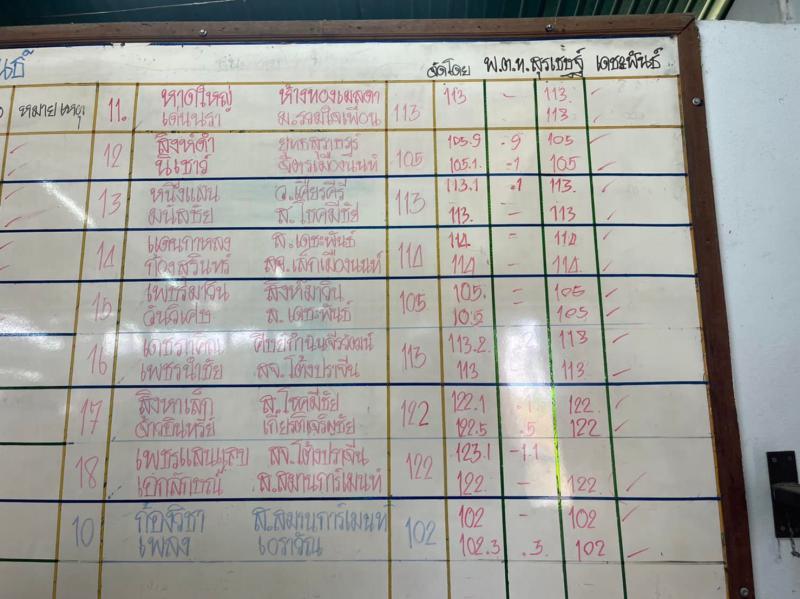 จัดโดย พ.ต.ท. สุรเชษฐ์ เดชะพันธ์
หมายเหตุ 11. หาดใหญ่ ห้างทองเมลดา 113 113 - 113. ✓
เด่นนรา ม.รวมใจเพื่อน 113 ✓
12 สิงห์ดำ 105 105.9 .9 105 ✓
นิเชาว์ จิตรเมืองนนท์ 105.1. .1 105 ✓
13 หนึ่งแสน ว.เศียรคีรี 113 113.1 .1 113. ✓
มนัสชัย ส.โชคมีชัย 113. - 113 ✓
14 แดนกาหลง ส.เดชะพันธ์ 114 114 - 114 ✓
ก้องสุรินทร์ สจ.เล็กเมืองนนท์ 114 - 114. ✓
15 เพชรมาวิน สิงห์มาวิน 105 105. - 105 ✓
วันวิเศษ ส.เดชะพันธ์ 105 105 ✓
16 113 113.2 .2 113 ✓
เพชรนำชัย สจ.โต้งปราจีน 113 - 113. ✓
17 สิงหาเล็ก ส.โชคมีชัย 122 122.1 .1 122. ✓
เกียรติเจริญชัย 122.5 .5 122 ✓
18 เพชรแสนแสบ สจ.โต้งปราจีน 122 123.1 -1.1
เอกลักษณ์ ส.สมานการ์เมนท์ 122. - 122. ✓
10 ก้องวิชา ส.สมานการ์เมนท์ 102 102 - 102 ✓
เพลง เอราวัณ 102.3 .3. 102 ✓